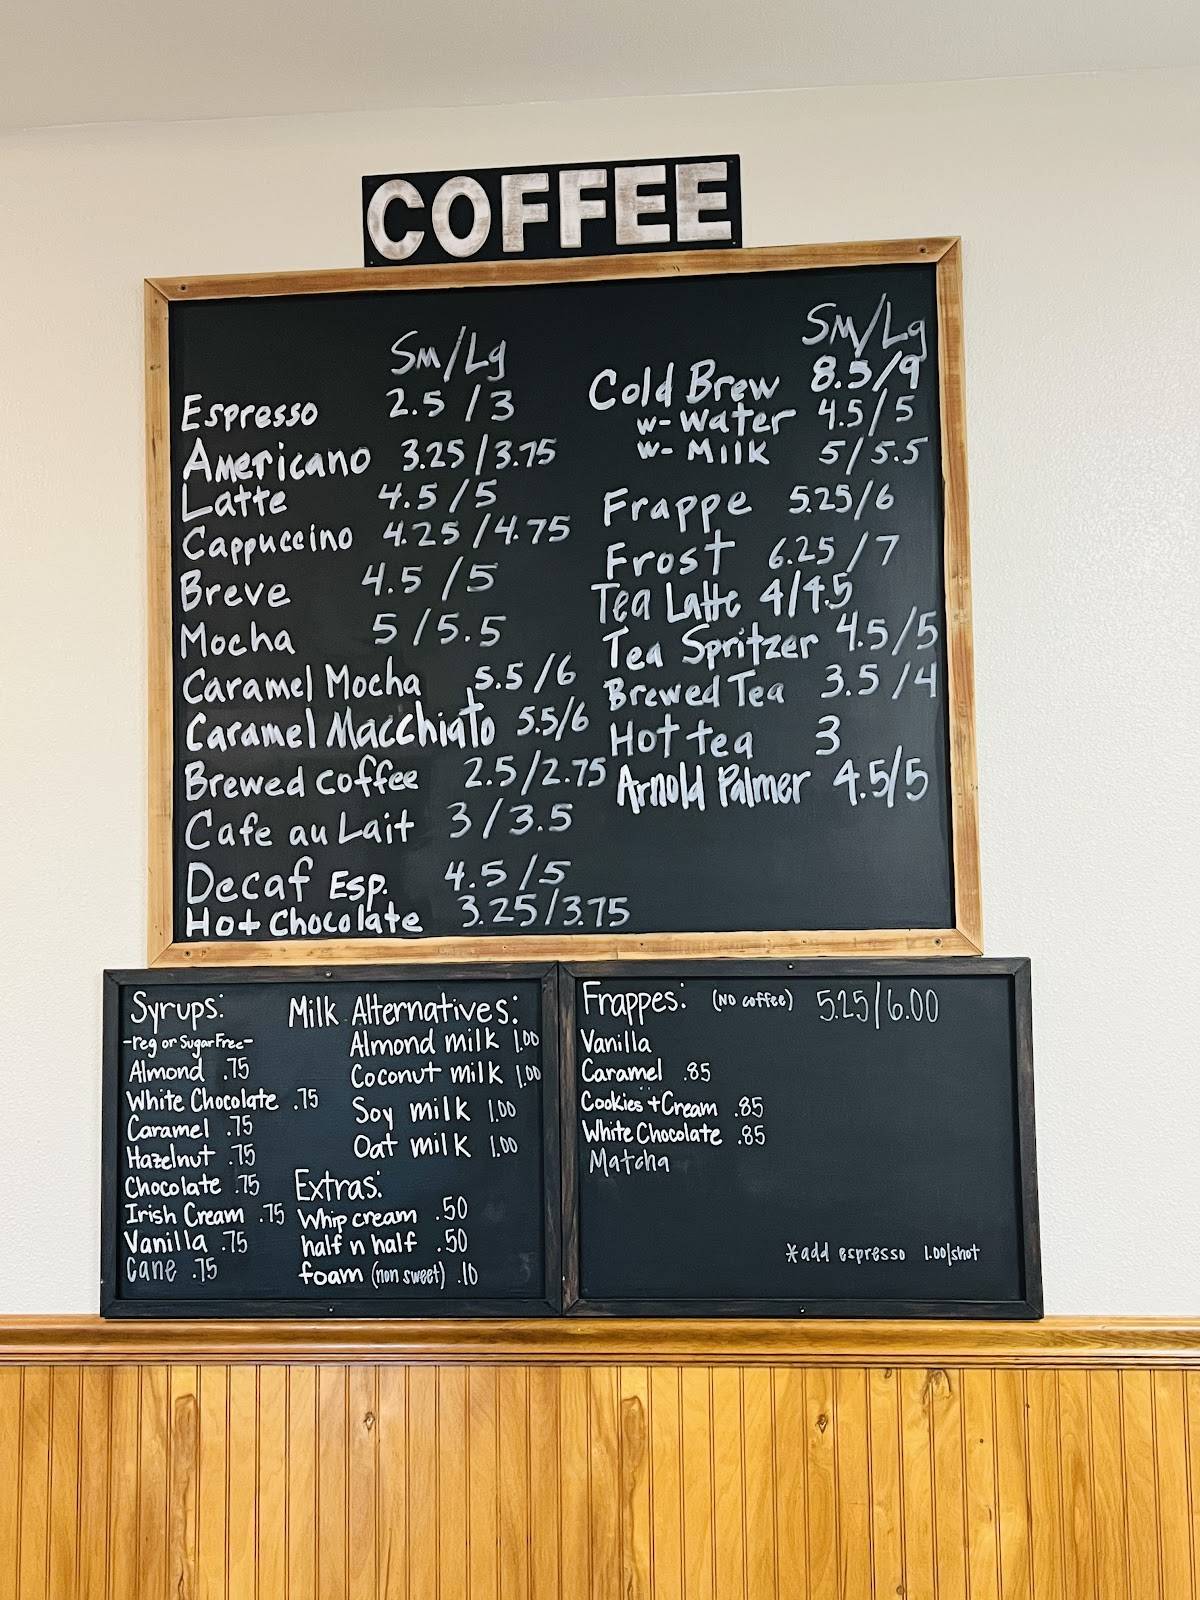 COFFEE
Sm/Lg
Espresso 2.5/3
Americano 3.25/3.75
Latte 4.5/5
Cappuccino 4.25/4.75
Breve 4.5/5
Mocha 5/5.5
Caramel Mocha 5.5/6
Caramel Macchiato 5.5/6
Brewed coffee 2.5/2.75
Cafe au Lait 3/3.5
Decaf Esp. 4.5/5
Hot Chocolate 3.25/3.75
Sm/Lg
Cold Brew 8.5/9
w- Water 4.5/5
w- Milk 5/5.5
Frappe 5.25/6
Frost 6.25/7
Tea Latte 4/4.5
Tea Spritzer 4.5/5
Brewed Tea 3.5/4
Hot tea 3
Arnold Palmer 4.5/5
Syrups:
-reg or Sugar Free-
Almond .75
White Chocolate .75
Caramel .75
Hazelnut .75
Chocolate .75
Irish Cream .75
Vanilla .75
Cane .75
Milk Alternatives:
Almond milk 1.00
Coconut milk 1.00
Soy milk 1.00
Oat milk 1.00
Extras:
Whip cream .50
half n half .50
foam (non sweet) .10
Frappes: (No coffee) 5.25/6.00
Vanilla
Caramel .85
Cookies + Cream .85
White Chocolate .85
Matcha
*add espresso 1.00/shot